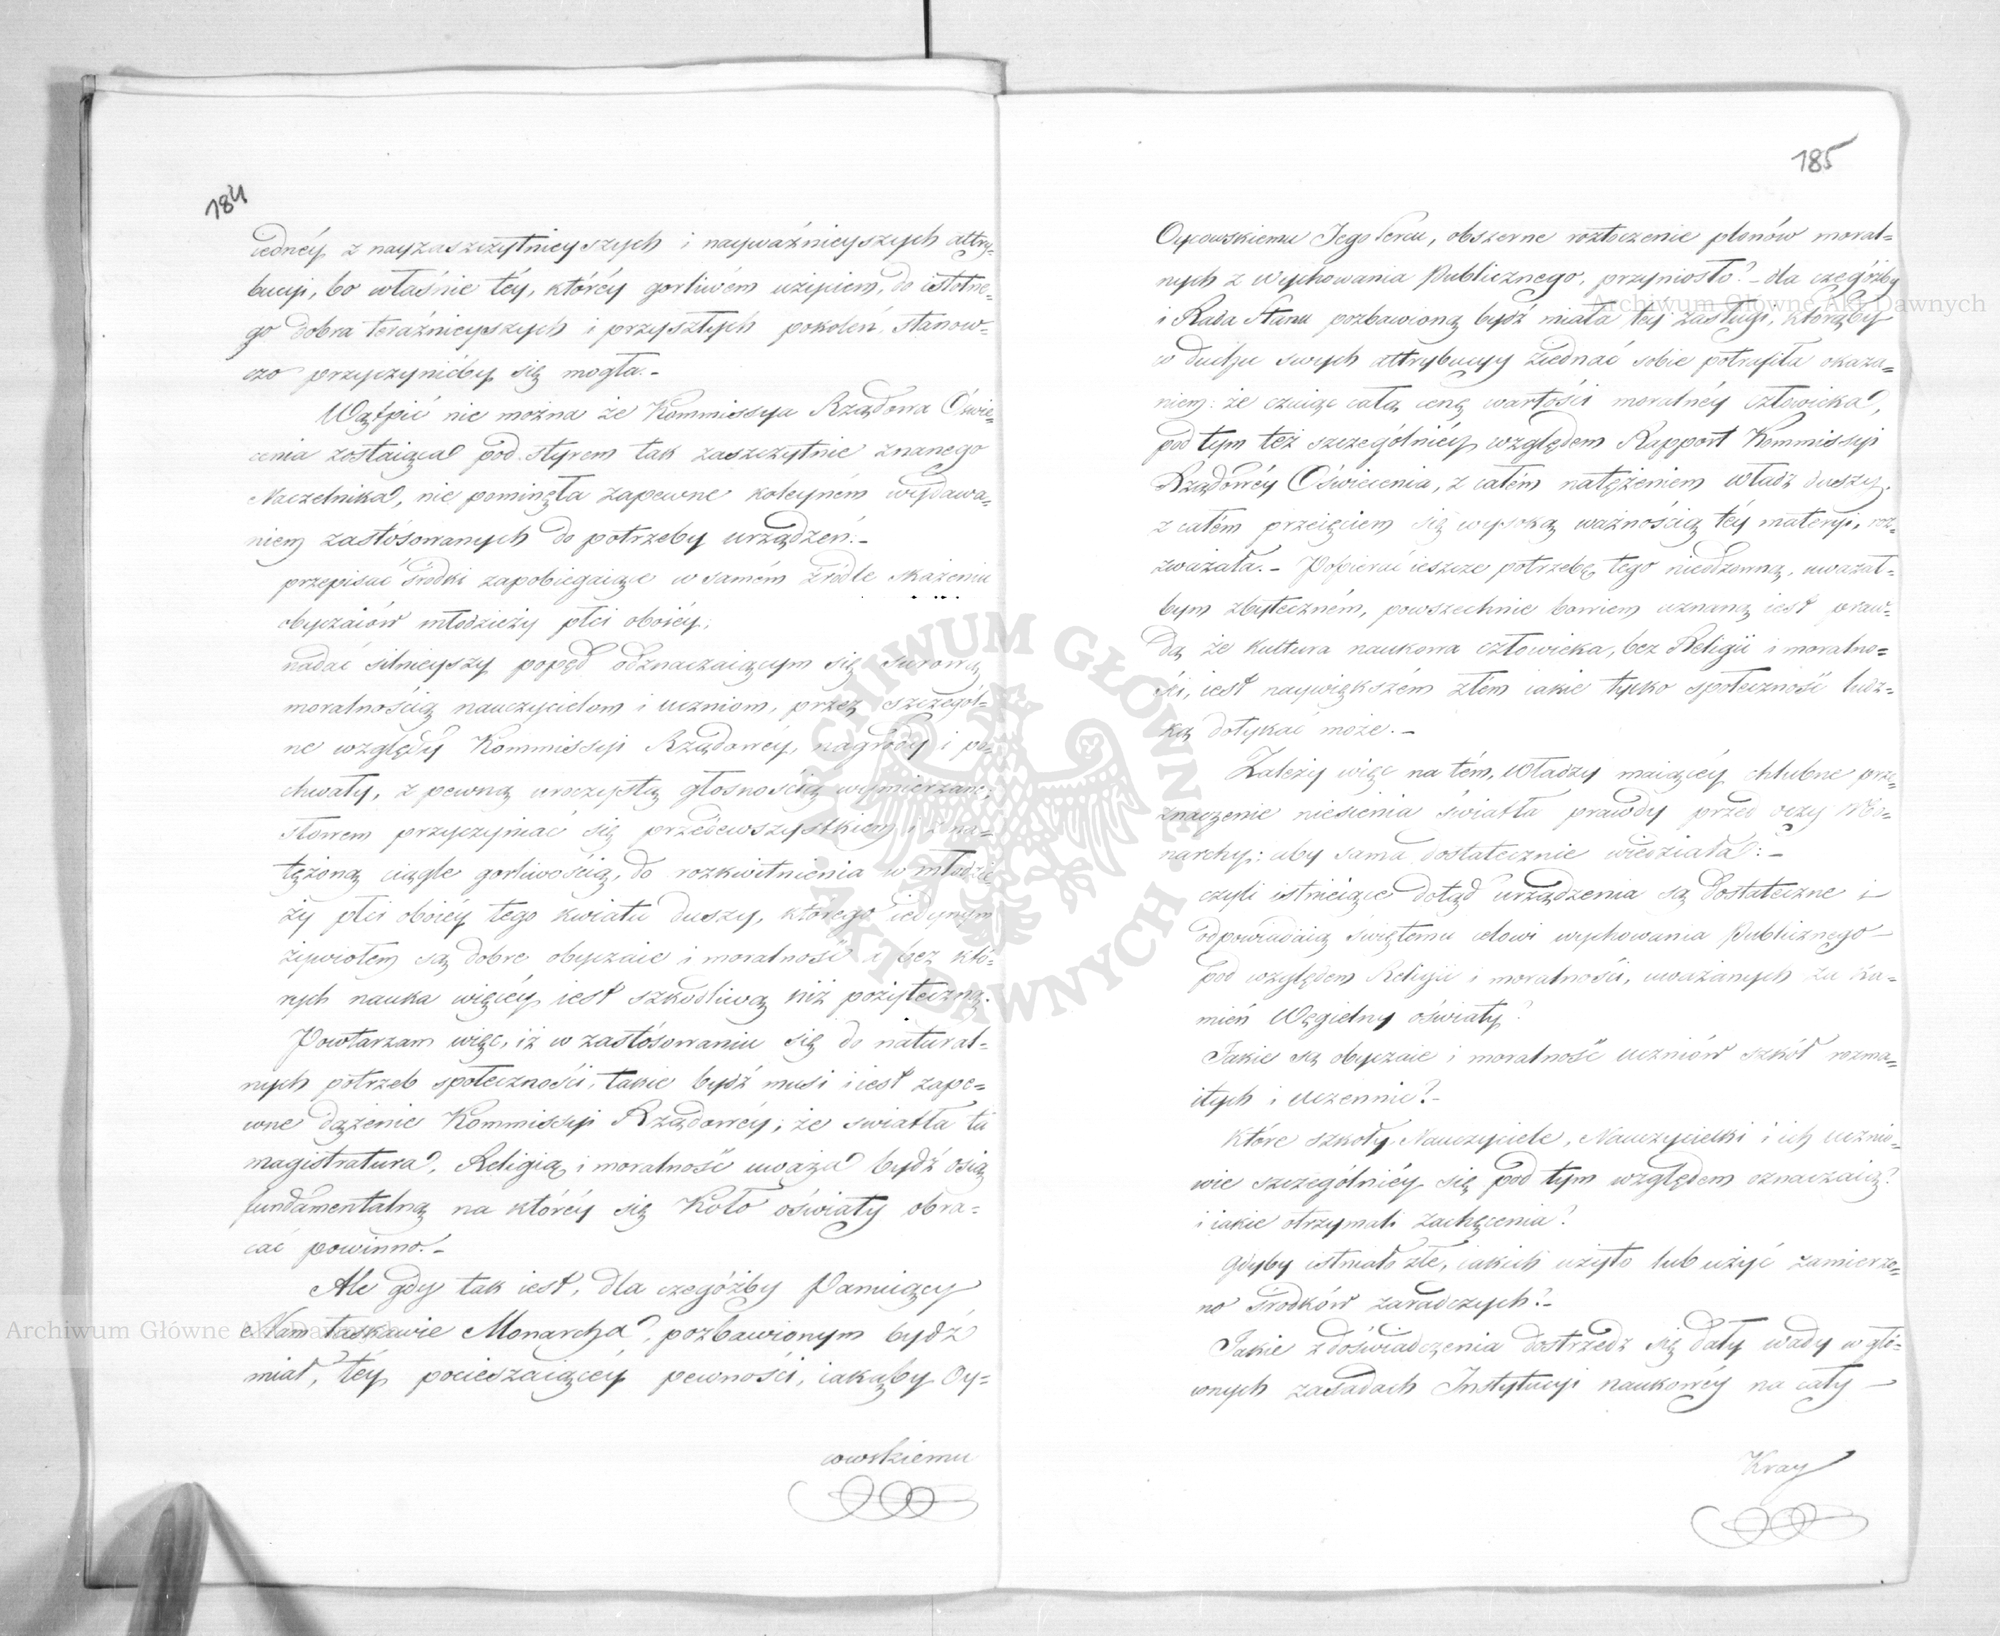 184
iednéy z nayzaszczytnieyszych i nayważnieyszych attry-
bucyi, bo właśnie téy, któréy gorliwém użyciem, do istotne-
go dobra teraźnieyszych i przyszłych pokoleń, stanow-
czo przyczynićby się mogła.-
Wątpić nie można że Kommissya Rządowa Oświe-
cenia zostaiąca pod styrem tak zaszczytnie znanego
Naczelnika, nie pominęła zapewne koleyném wydawa-
niem zastósowanych do potrzeby urządzeń.-
przepisać środki zapobiegaiące w samém źródle skażeniu
obyczaiów młodzieży płci oboiéy,
nadać silnieyszy popęd odznaczaiącym się surową
moralnością nauczycielom i uczniom, przez szczegól-
ne względy Kommissyi Rządowéy, nagrody i po-
chwały, z pewną uroczystą głosnością wymierzane;
słowem przyczyniać się przedewszystkiem i z na-
tężoną ciągle gorliwością, do rozkwitnienia w młodzie-
ży płci oboiéy tego kwiatu duszy, którego iedynym
żywiołem są dobre obyczaie i moralność i bez któ-
rych nauka więcéy iest szkodliwą niż pożyteczną.
Powtarzam więc, iż w zastósowaniu się do natural-
nych potrzeb społeczności, takie bydź musi i iest zape-
wne dążenie Kommissyi Rządowéy; że swiatła ta
magistratura, Religią i moralność uważa bydź osią
fundamentalną na któréy się Koło oświaty obra-
cać powinno.-
Ale gdy tak iest, dla czegóżby Panuiący
Nam łaskawie Monarcha, pozbawionym bydź
miał, téy pocieszaiącéy pewności, iakąby Oy-
cowskiemu
185
Oycowskiemu Jego Sercu, obszerne roztoczenie plonów moral-
nych z Wychowania Publicznego, przyniosło? - dla czegóżby
i Rada Stanu pozbawioną bydź miała téy zasługi, którąby
w duchu swych attrybucyy ziednać sobie potrafiła okaza-
niem: że czuiąc całą cenę wartości moralnéy człowieka,
pod tym też szczególniéy względem Rapport Kommissyi
Rządowéy Oświecenia, z całém natężeniem władz duszy,
z całém przeięciem się wysoką ważnością téy materyi, roz-
zważała.- Popierać ieszcze potrzebę tego niedźowną, uważał-
bym zbyteczném, powszechnie bowiem uznaną iest praw-
dą że kultura naukowa człowieka, bez Religii i moralno-
ści, iest naywiększém złem iakie tylko społeczność ludz-
ką dotykać może.-
Zależy więc na tém, Władzy maiącéy chlubne prze-
znaczenie niesienia światła prawdy przed oczy Mo-
narchy: aby sama dostatecznie wiedziała:-
czyli istnieiące dotąd urządzenia są dostateczne i
odpowiadaią swiętemu celowi wychowania Publicznego
pod względem Religii i moralności, uważanych za Ka-
mień Węgielny oświaty?
Jakie są obyczaie i moralność uczniów szkół rozma-
itych i uczennic?-
które szkoły, Nauczyciele, Nauczycielki i ich ucznio-
wie szczególniéy się pod tym względem oznaczaią?
i iakie otrzymali zachęcenia?
gdyby istniało złe, iakich użyto lub użyć zamierzo-
no środków zaradczych?-
Jakie z doświadczenia dostrzedz się dały wady w głó-
wnych zasadach Instytucyi naukowéy na cały
Kray